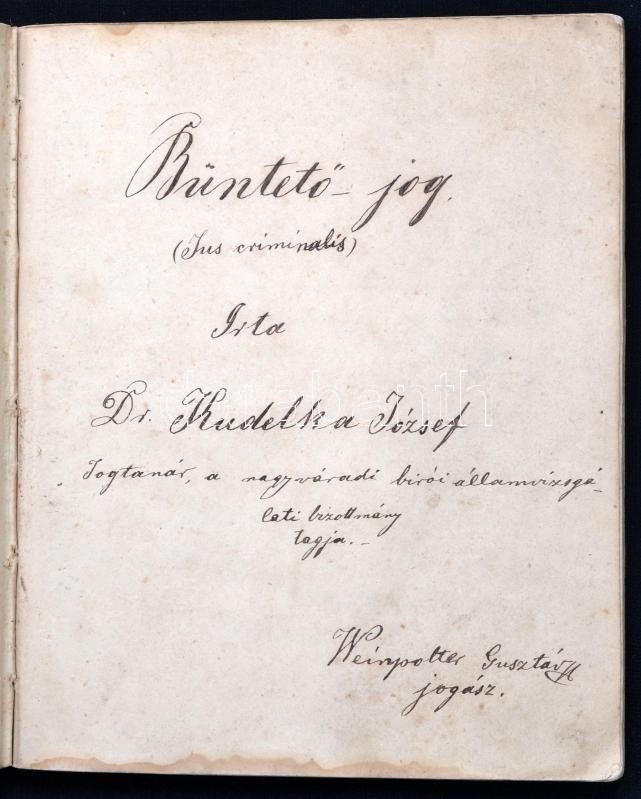 Büntető- jog.
(Jus criminalis)
Irta
Dr. Kudelka József
Jogtanár, a nagyváradi birói államvizsgá-
lati bizottmány
tagja. -
Weinpolter Gusztáv
jogász.